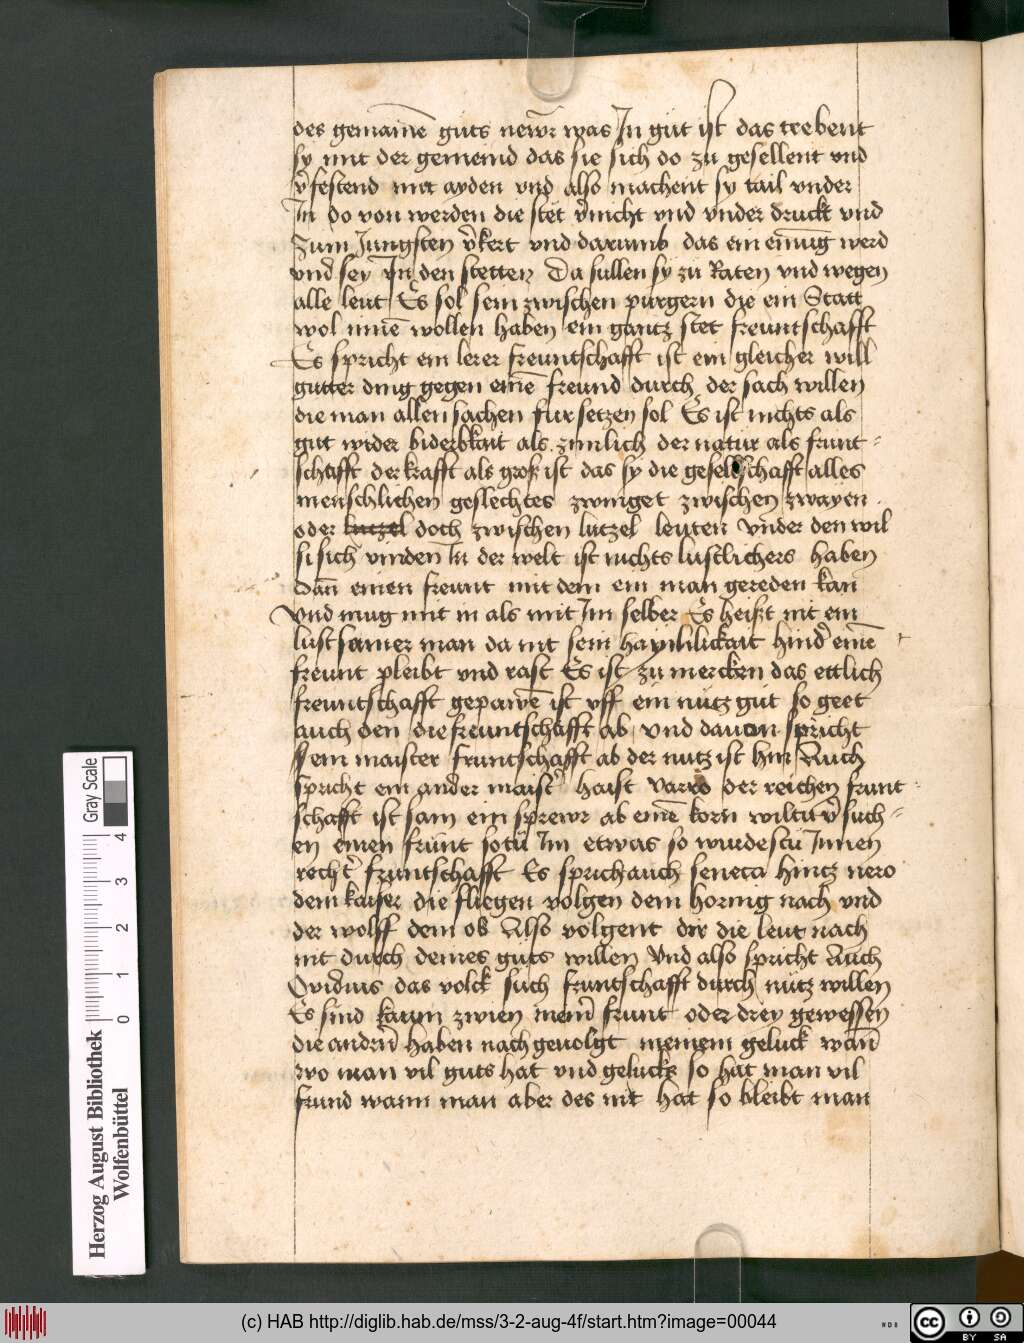 des gemaine guts newr was In gut ist das trebent
sy mit der gemeind das sie sich do zu gesellent vnd
vfestend mit ayden vnd also machent sy tail vnder
In do von werden die stet vnicht vnd vnder druckt vnd
Zum Jungsten vkert vnd darumb das ein einug werd
vnd sey In den stetten Da sullen sy zu Raten vnd wegen
alle leut Es sol sein zwischen purgern die ein Statt
wol inne wollen haben ein gantz stet freuntschafft
Es spricht ein lerer freuntschafft ist ein gleicher will
gutter ding gegen eine freund durch der sach willen
die man allen sachen fursetzen sol Es ist nichts als
gut wider biderbkait als zimlich der natur als frunt-
schafft der krafft als groß ist das sy die gesellschafft alles
menschlichen geslechtes zwinget zwischen zwayen
oder lutzel doch zwischen lutzel leuten vnder den wil
si sich vinden In der welt ist nichts lustlichers haben
dan einen freunt mit dem ein man gereden kan
vnd mug mit in als mit Im selber Es heißt nit ein
lustsamer man da nit sein haymlilickait hind eine
freunt pleibt vnd rast Es ist zu mercken das ettlich
freuntschafft gepawe ist vff ein nutz gut so geet
auch den die freuntschafft ab vnd dauon spricht
ein maister fruntschafft ab der nutz ist hin Auch
spricht ein ander maist haist varro der reichen frunt-
schafft ist sam ein sprewr ab eine korn wiltu v such-
en einen frunt sotu Im etwas so wurdestu Innen
recht fruntschafft Es sprichauch seneca hintz nero
dem kaiser die fliegen volgen dem hornig nach vnd
der wolff dem ob Also volgent dir die leut nach
nit durch deines guts willen Vnd also spricht Auch
Ovidius das volck such fruntschafft durch nutz willen
Es sind kaum zwien mein frunt oder drey gewessen
die andrn haben nach geuolgt meinem geluck wan
wo man vil guts hat vnd gelucks so hat man vil
frund wann man aber des nit hat so bleibt man
Herzog August Bibliothek
Wolfenbüttel
0 1 2 3 4
Gray Scale
(c) HAB http://diglib.hab.de/mss/3-2-aug-4f/start.htm?image=00044
WDB
cc BY SA